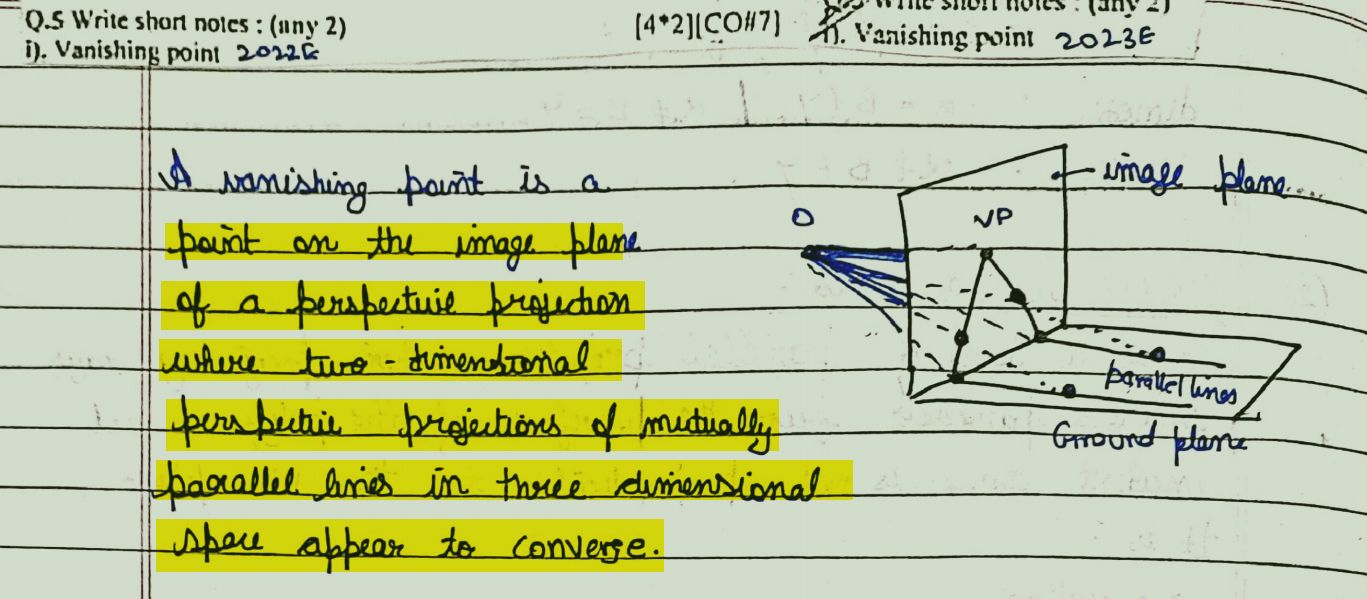 Q.5 Write short notes : (any 2) [4*2][CO#7]
i). Vanishing point 2022E
Write short notes : (any 2)
i). Vanishing point 2023E
A vanishing point is a
point on the image plane
of a perspective projection
where two-dimensional
perspective projections of mutually
parallel lines in three dimensional
space appear to converge.
image plane
O
VP
parallel lines
Ground plane